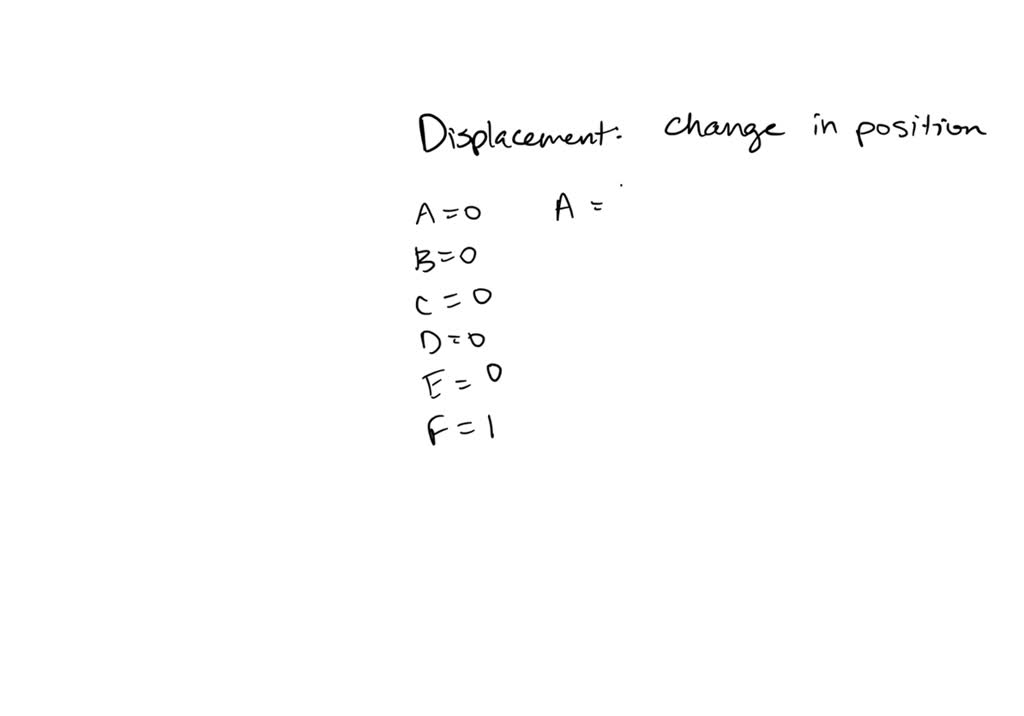 Displacement: change in position
A = 0 A =
B = 0
C = 0
D = 0
E = 0
F = 1